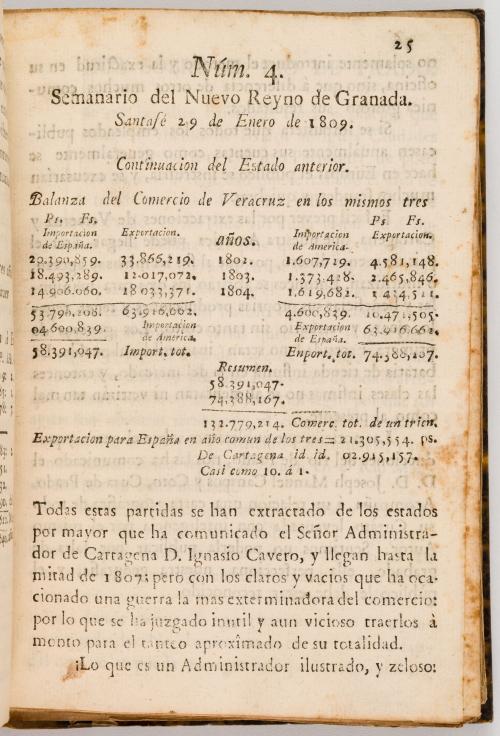 25
Núm. 4.
Semanario del Nuevo Reyno de Granada.
Santafé 29 de Enero de 1809.
Continuacion del Estado anterior.
Balanza del Comercio de Veracruz en los mismos tres
Ps. Fs. años. Ps. Fs.
Importacion Exportacion. Importacion Exportacion.
de España. de America.
20.390,859. 33.866,219. 1802. 1.607,719. 4.581,148.
18.493,289. 12.017,072. 1803. 1.373.428. 2.465,846.
14.906.060. 18.033,371. 1804. 1.619,682. 3 434,511.
53.790,208. 63,916,662. 4.600,839. 10.471,505.
04.600,839. Importacion Exportacion 63.916,662.
de America. de España.
58.391,047. Import. tot. Enport. tot. 74.388,167.
Resumen.
58.391,047.
74,388,167.
132.779,214. Comerc. tot. de un trien.
Exportacion para España en año comun de los tres = 21.305,554. ps.
De Cartagena id. id. 02.915,157.
Casi como 10. á 1.
Todas estas partidas se han extractado de los estados
por mayor que ha comunicado el Señor Administra-
dor de Cartagena D. Ignasio Cavero, y llegan hasta la
mitad de 1807: pero con los claros y vacios que ha oca-
cionado una guerra la mas exterminadora del comercio:
por lo que se ha juzgado inutil y aun vicioso traerlos á
monto para el tanteo aproximado de su totalidad.
¡Lo que es un Administrador ilustrado, y zeloso: